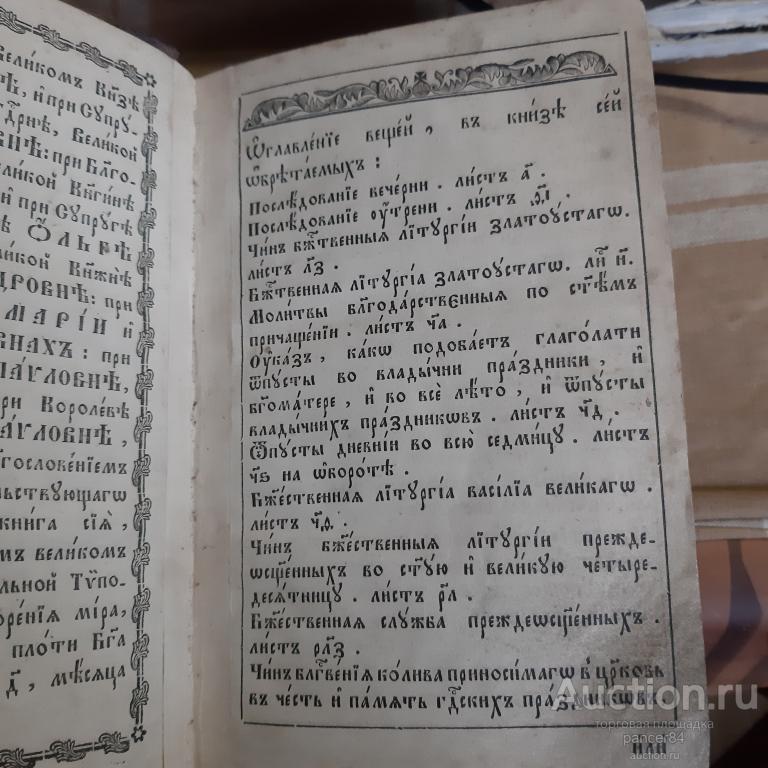 Вели́комъ Кн҃зѣ
ѣ, и҆ при Сꙋпрꙋ-
Вели́кой
ВИЧѢ: при Бл҃го-
Вели́кой Кн҃ги́нѣ
и҆ при Сꙋпрꙋгѣ
ѢѢ Ѻ҆́ЛЬГѢ
вели́кой Кнѧжнѣ̀
ДРОВНѢ: при
МАРІ́И и҆
ВНАХЪ: при
ПА́ѴЛОВИЧѢ,
при Короле́вѣ
ПА́ѴЛОВНѢ,
гослове́нїемъ
льствꙋющагѡ
кни́га сїѧ̀,
мъ вели́комъ
льной Тѷпо-
оре́нїѧ мі́ра,
пло́ти Бг҃а
д҃, мѣ́сѧца
Ѡ҆главле́нїе веще́й, въ кни́зѣ се́й
ѡ҆брѣта́емыхъ:
Послѣ́дованїе вече́рни. ли́стъ а҃.
Послѣ́дованїе ᲂу҆́трени. ли́стъ
Чи́нъ бж҃твенныѧ лїтꙋргі́и златоꙋ́стагѡ.
ли́стъ л҃з.
Бж҃твеннаѧ лїтꙋргі́а златоꙋ́стагѡ. н҃.
Моли́твы бл҃года́рствєнныѧ по ст҃ѣмъ
причаще́нїи. ли́стъ ч҃а.
Оу҆ка́зъ, ка́кѡ подоба́етъ глаго́лати
ѿпꙋсты во влады́чни пра́здники, и҆
бг҃ома́тере, и҆ во всѐ лѣ́то, и҆ ѿпꙋсты
влады́чнихъ пра́здникѡвъ. ли́стъ ч҃д.
Ѿпꙋсты дне́внїи во всю̀ седми́цꙋ. ли́стъ
ч҃ѕ на ѡ҆боро́тѣ.
Бж҃е́ственнаѧ лїтꙋргі́а васі́лїа вели́кагѡ.
ли́стъ ч҃ѳ.
Чи́нъ бж҃е́ственныѧ лїтꙋргі́и прежде-
ѡсщ҃е́нныхъ во ст҃ꙋ́ю и҆ вели́кꙋю четыре-
десѧ́тницꙋ. ли́стъ рл҃.
Бж҃е́ственнаѧ слꙋ́жба преждеѡсщ҃е́нныхъ.
ли́стъ рл҃з.
Чи́нъ бл҃гве́нїѧ ко́лива приноси́магѡ в̾ цр҃ковь
въ че́сть и҆ па́мѧть гд҇скихъ пра́здникѡвъ
и҆лѝ
Auction.ru
торговая площадка
pancer84
auction.ru